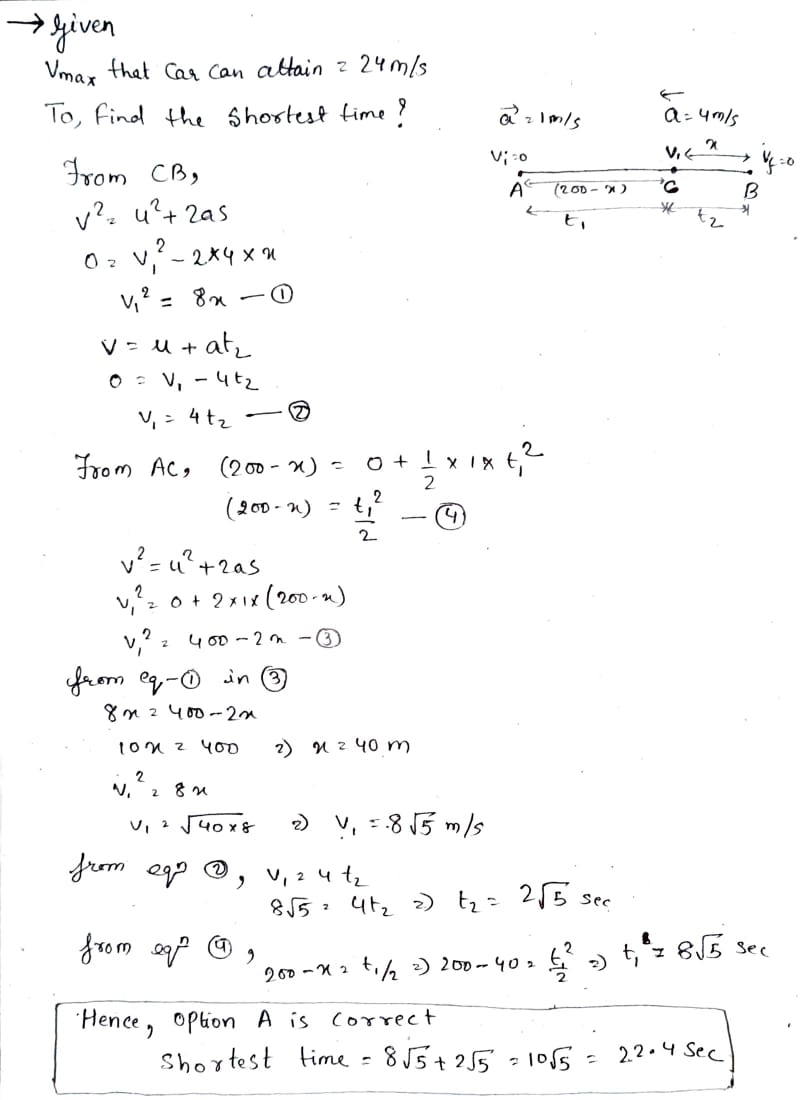 → Given
Vmax that Car Can attain = 24m/s
To, find the Shortest time?
a⃗ = 1m/s
a⃖ = 4m/s
Vi=0
V1 ← x → Vf=0
A (200-x) C B
t1 t2
From CB,
v² = u² + 2as
0 = V1² - 2*4 × x
V1² = 8x — ①
v = u + at2
0 = V1 - 4t2
V1 = 4t2 — ②
From AC, (200-x) = 0 + 1/2 × 1 × t1²
(200-x) = t1²/2 — ④
v² = u² + 2as
V1² = 0 + 2×1×(200-x)
V1² = 400-2x - ③
from eq-① in ③
8x = 400-2x
10x = 400 => x = 40 m
V1² = 8x
V1 = √40×8 => V1 = 8√5 m/s
from eqn ②, V1 = 4 t2
8√5 = 4t2 => t2 = 2√5 sec
from eqn ④,
200-x = t1/2 => 200-40 = t1²/2 => t1 = 8√5 Sec
Hence, option A is Correct
Shortest time = 8√5 + 2√5 = 10√5 = 22.4 Sec